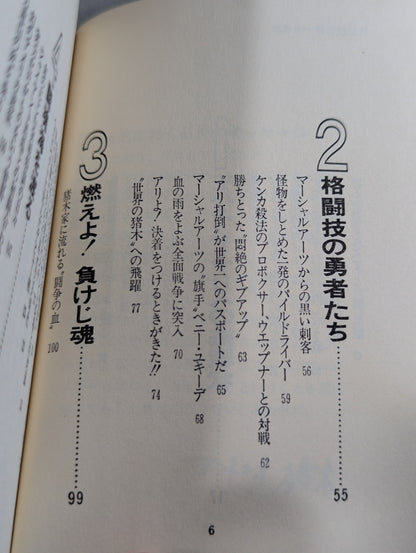 2 格闘技の勇者たち 55
マーシャルアーツからの黒い刺客 56
怪物をしとめた一発のパイルドライバー 59
ケンカ殺法のプロボクサー、ウエップナーとの対戦 62
勝ちとった〝悶絶のギブアップ〟 63
〝アリ打倒〟が世界一へのパスポートだ 65
マーシャルアーツの〝旗手〟ベニー・ユキーデ 68
血の雨をよぶ全面戦争に突入 70
アリよ？決着をつけるときがきた!! 74
〝世界の猪木〟への飛躍 77
3 燃えよ！負けじ魂 99
猪木家に流れる〝闘争の血〟 100
6